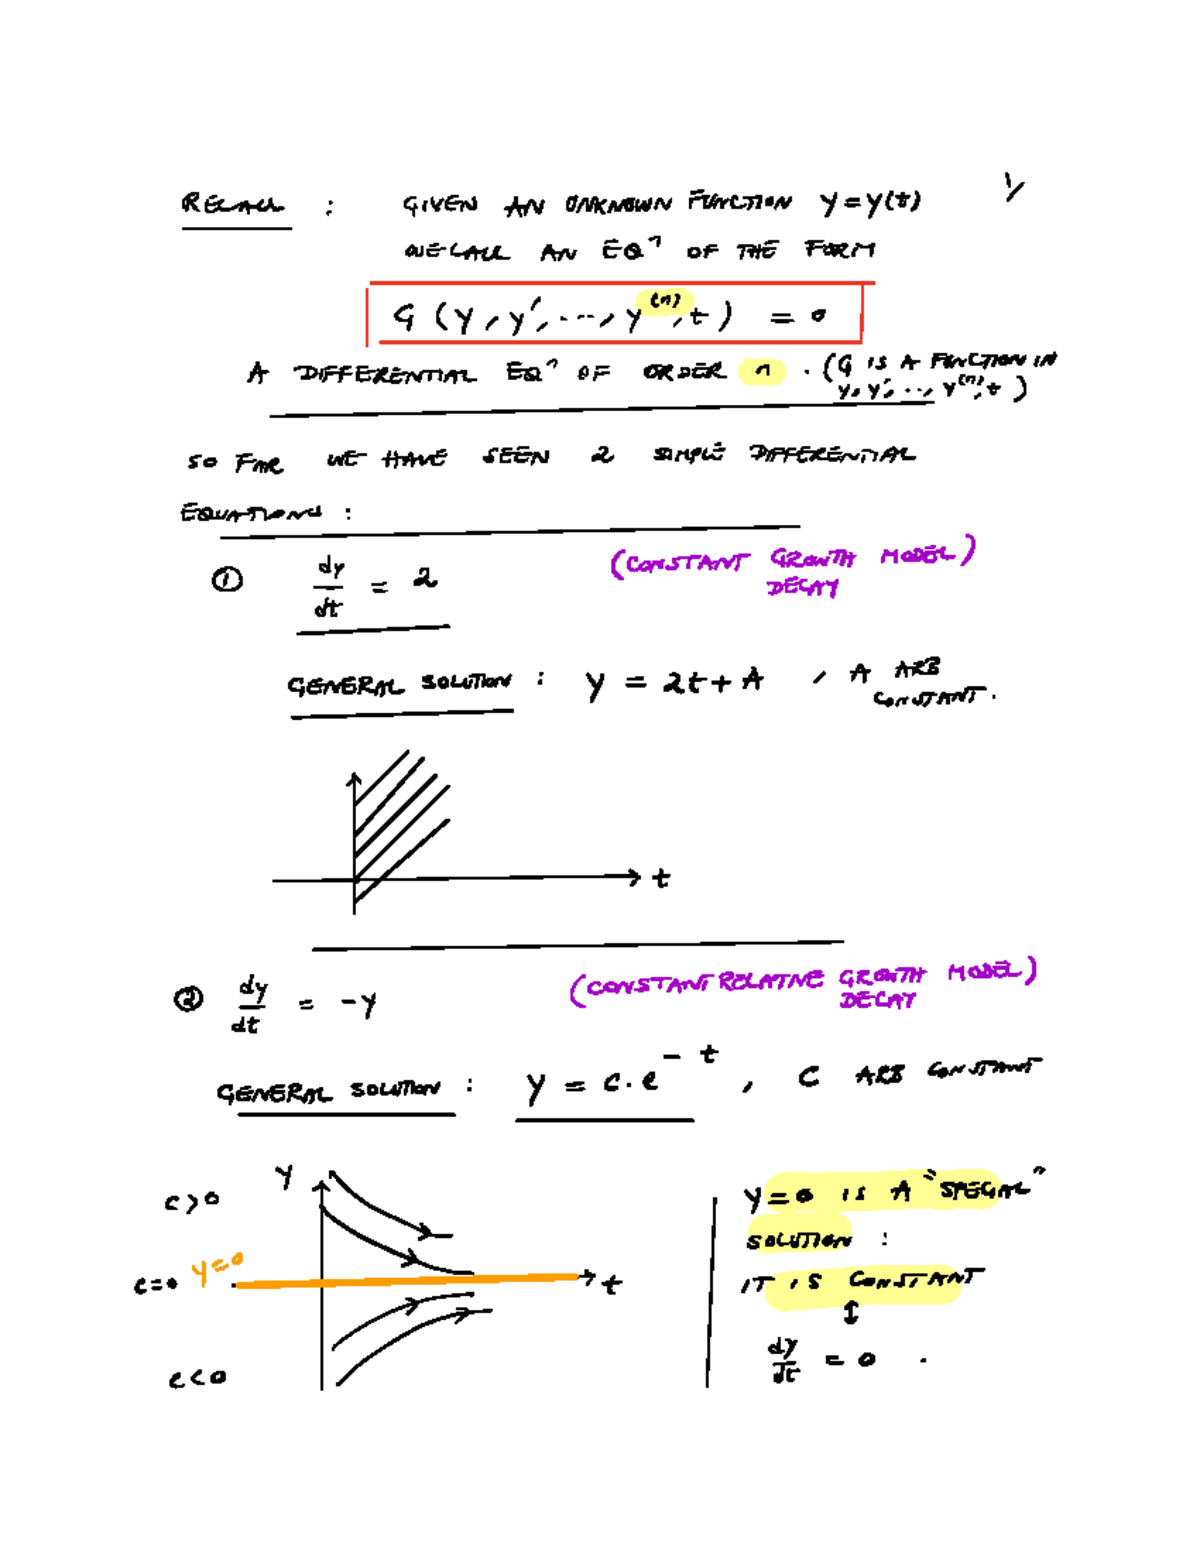 RECALL : GIVEN AN UNKNOWN FUNCTION y = y(t) 1/
WE CALL AN EQⁿ OF THE FORM
G (y, y', ..., y⁽ⁿ⁾, t) = 0
A DIFFERENTIAL EQⁿ OF ORDER n . (G IS A FUNCTION IN
y, y', .., y⁽ⁿ⁾, t )
SO FAR WE HAVE SEEN 2 SIMPLE DIFFERENTIAL
EQUATIONS :
① dy/dt = 2 (CONSTANT GROWTH MODEL)
DECAY
GENERAL SOLUTION : y = 2t + A , A ARB
CONSTANT.
t
② dy/dt = -y (CONSTANT RELATIVE GROWTH MODEL)
DECAY
GENERAL SOLUTION : y = c · e^{-t} , C ARB CONSTANT
y
c > 0
c = 0 y = 0 t
c < 0
y = 0 IS A "SPECIAL"
SOLUTION :
IT IS CONSTANT
↕
dy/dt = 0 .